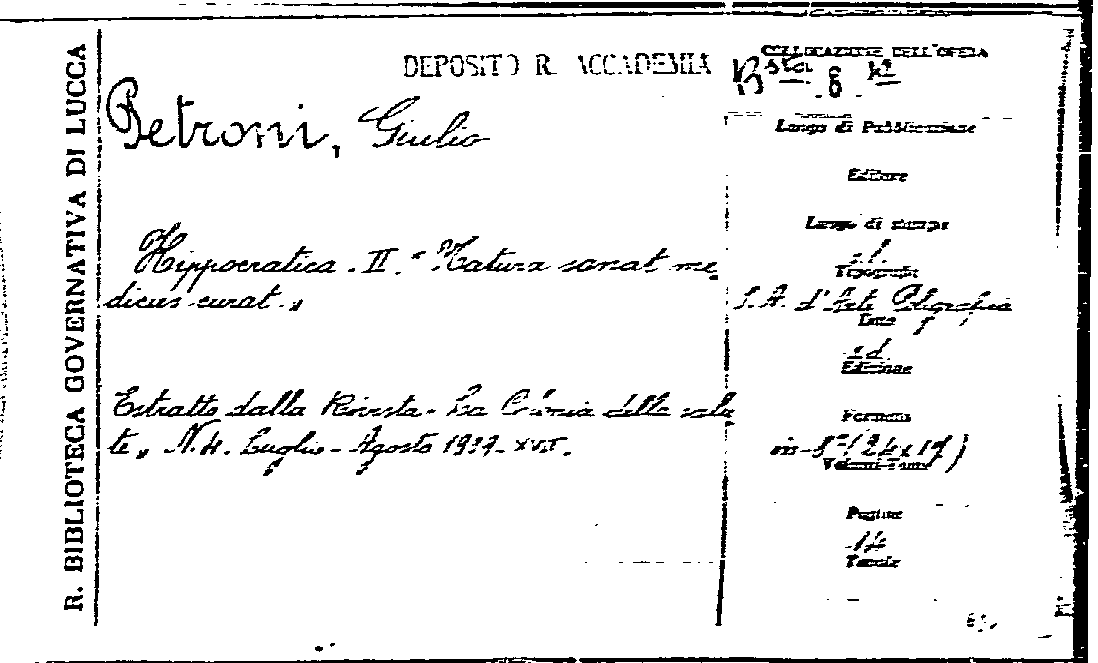 R. BIBLIOTECA GOVERNATIVA DI LUCCA
DEPOSITO R. ACCADEMIA
COLLOCAZIONE DELL'OPERA
Bsta 8
Petroni, Giulio
Luogo di Pubblicazione
Editore
Luogo di stampa
s.l.
Hippocratica. II. "Natura sanat me,
dicus curat."
Tipografia
S.A. d'Arti Poligrafia
Data
s.d.
Edizione
Estratto dalla Rivista - La Cronia della salu
te" N. 4. Luglio - Agosto 1939 - XVII.
Formato
in-8° (24x17)
Volumi-Tomi
Pagine
14
Tavole